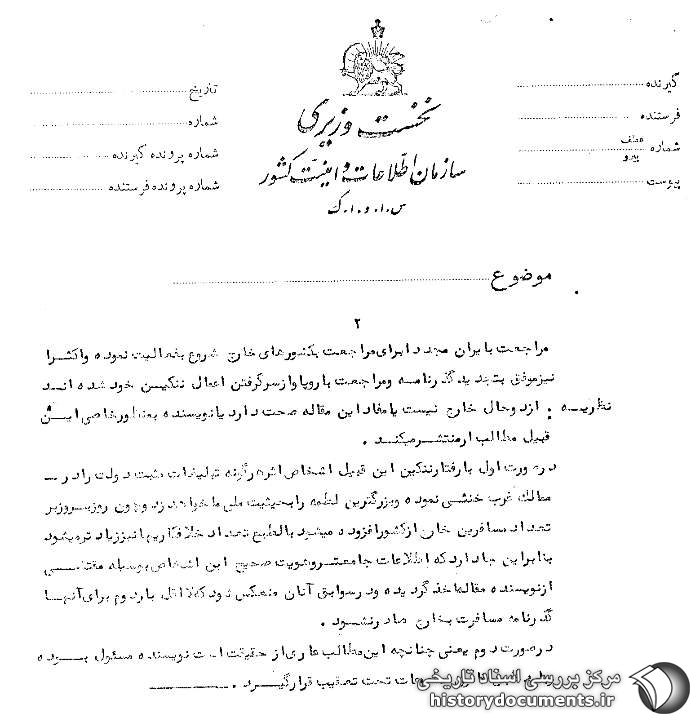 نخست وزیری
سازمان اطلاعات و امنیت کشور
س.ا.و.ا.ک
گیرنده
فرستنده
شماره عطف پیرو
پیوست
تاریخ
شماره
شماره پرونده گیرنده
شماره پرونده فرستنده
موضوع
۲
مراجعت بایران مجددا برای مراجعت بکشورهای خارج شروع بفعالیت نموده واکثرا
نیزموفق بتجدیدگذرنامه ومراجعت باروپا وازسرگرفتن اعمال ننگین خود شده اند
نظریه : ازدوحال خارج نیست یامفاد این مقاله صحت دارد یانویسنده بمنظورخاصی این
قبیل مطالب رامنتشرمیکند .
درصورت اول بارفتارننگین این قبیل اشخاص اثرهرگونه تبلیغات مثبت دولت رادر
ممالک غرب خنثی نموده وبزرگترین لطمه رابحیثیت ملی ماخواهد زد وچون روزبروزبر
تعداد مسافرین خارج ازکشورافزوده میشود بالطبع تعداد خلافکاریها نیززیاد ترمیشود
بنابراین جادارد که اطلاعات جامعتروهویت صحیح این اشخاص بوسیله مقتضی
ازنویسنده مقاله اخذگردیده ودرسوابق آنان منعکس شود که لااقل باردوم برای آنها
گذرنامه مسافرت بخارج صادرنشود .
درصورت دوم یعنی چنانچه این مطالب عاری از حقیقت است نویسنده مسئول بوده
تحت تعقیب قرارگیرد .
مرکز بررسی اسناد تاریخی
historydocuments.ir